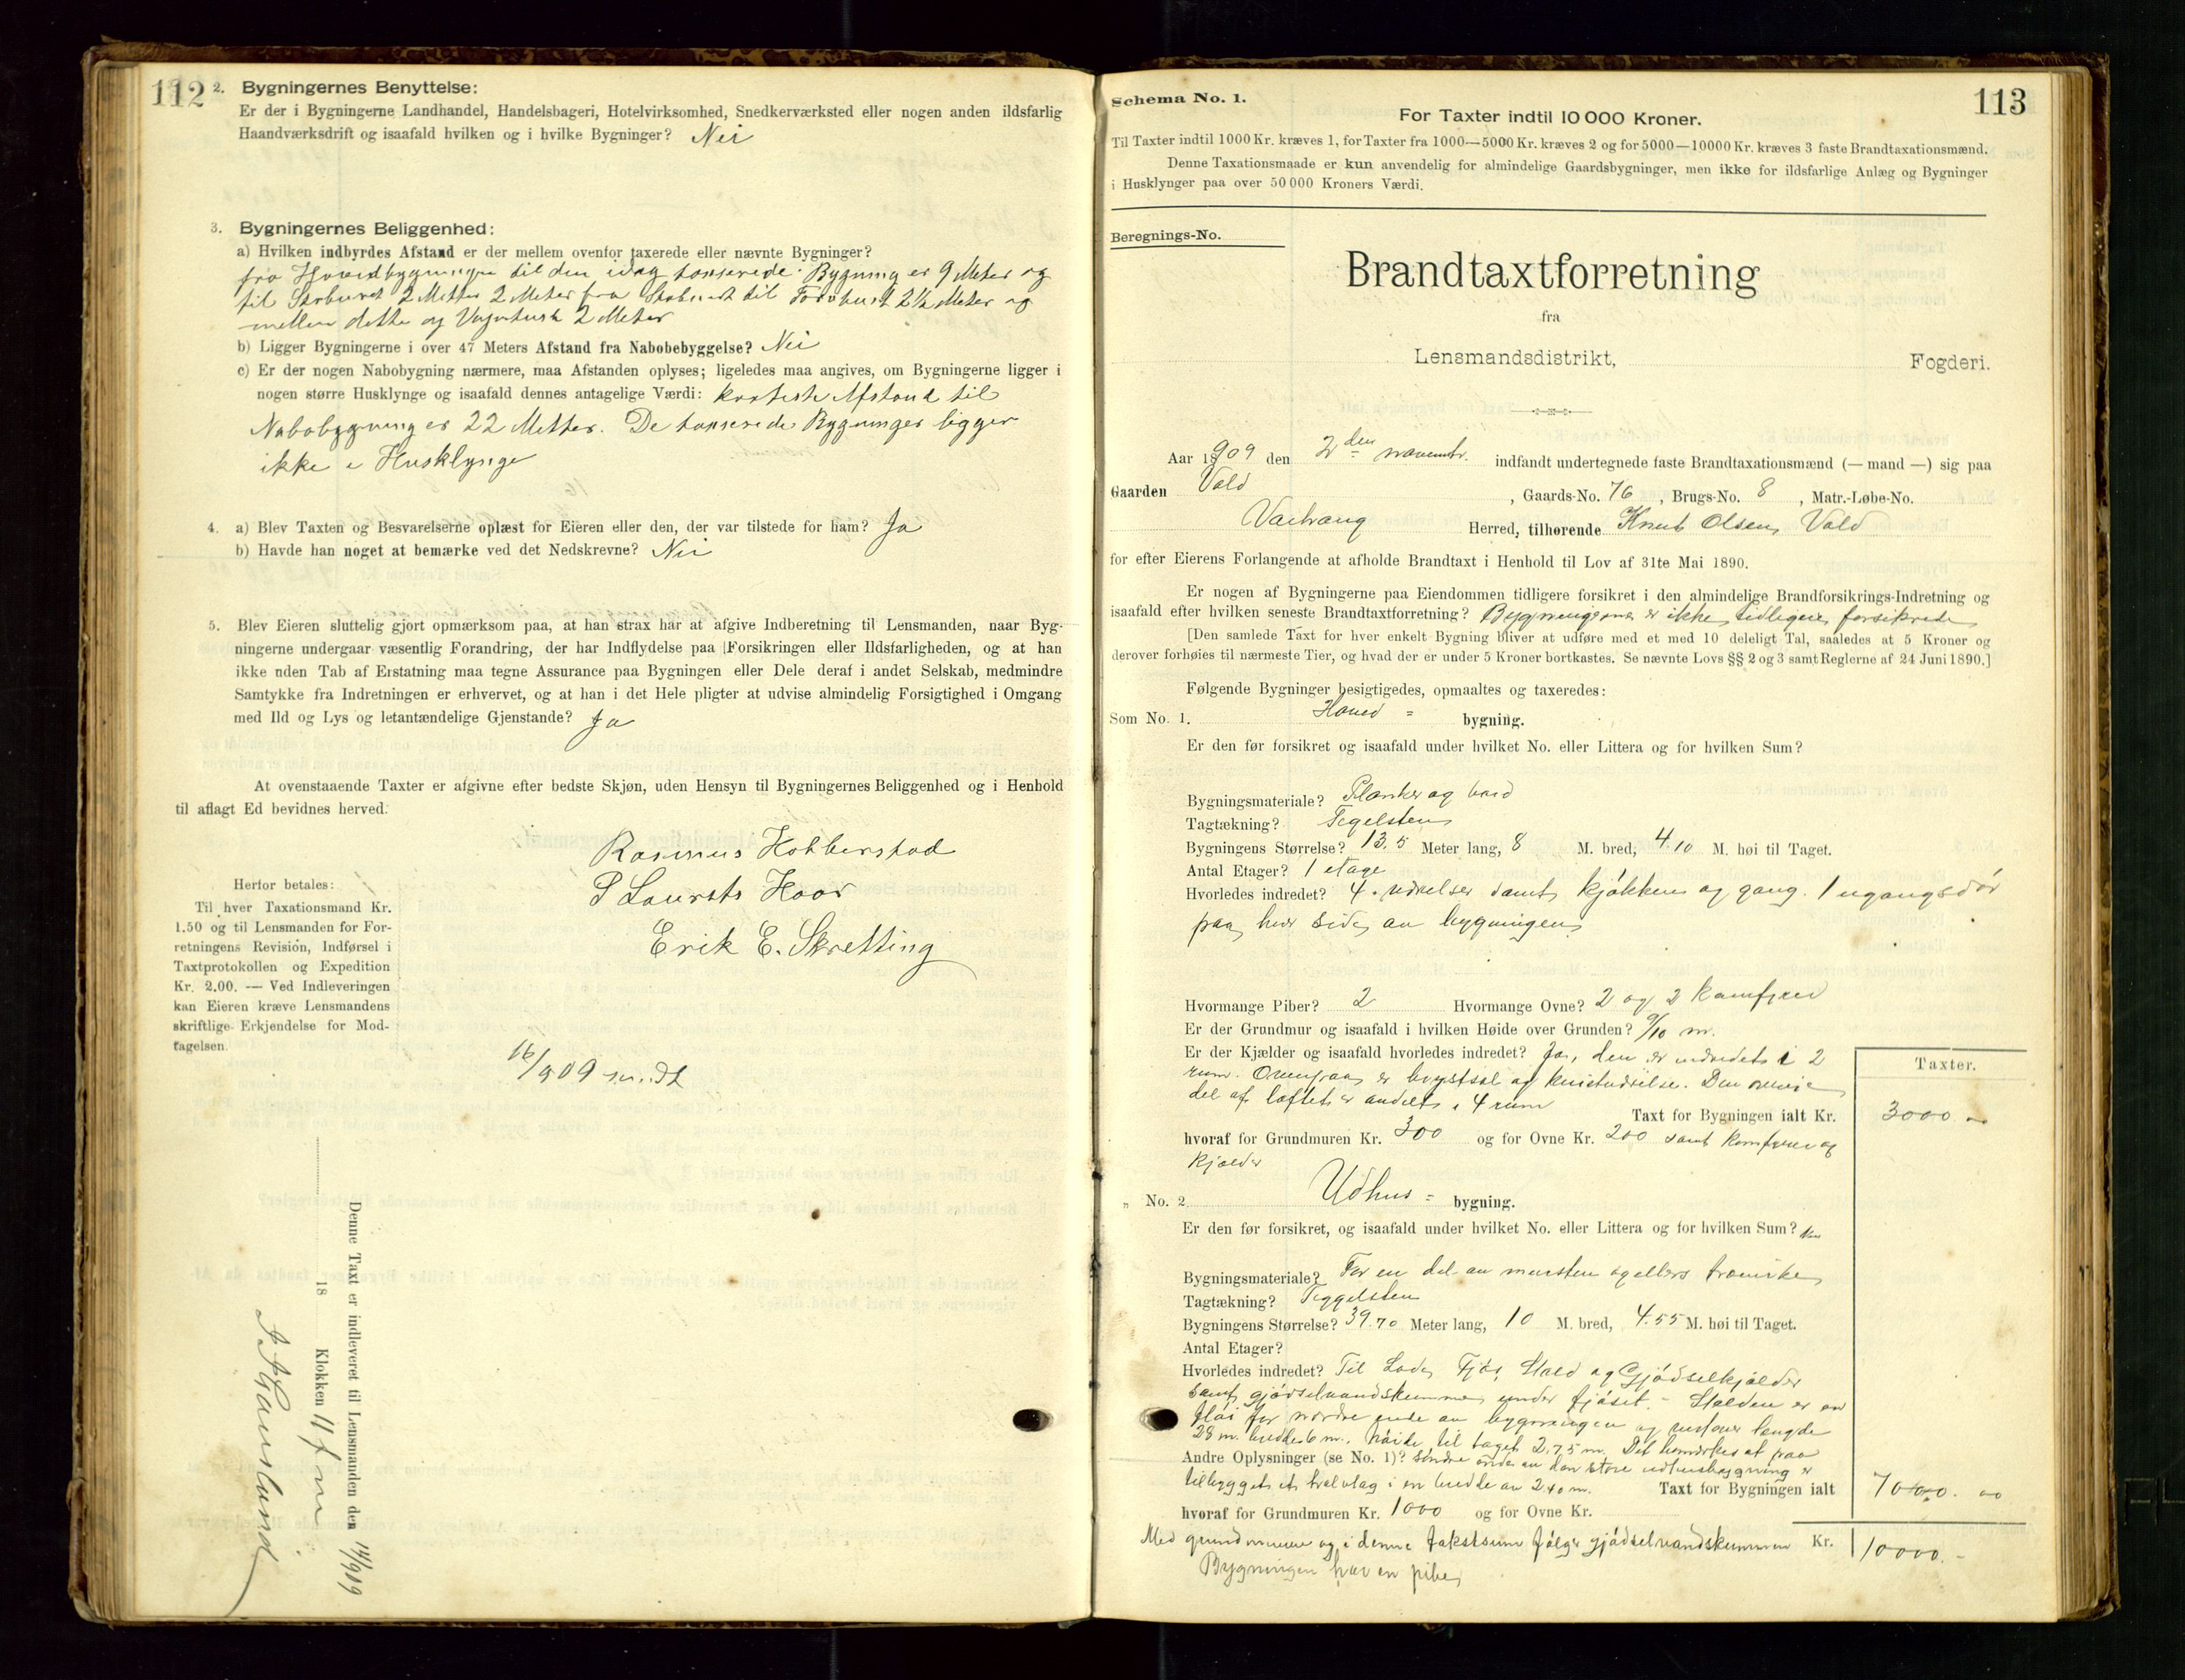 112
2. Bygningernes Benyttelse:
Er der i Bygningerne Landhandel, Handelsbageri, Hotelvirksomhed, Snedkerværksted eller nogen anden ildsfarlig
Haandværksdrift og isaafald hvilken og i hvilke Bygninger? Nei
3. Bygningernes Beliggenhed:
a) Hvilken indbyrdes Afstand er der mellem ovenfor taxerede eller nævnte Bygninger?
fra Hovedbygningen til den idag taxserede Bygning er 9 Meter og
til Staburet 2 Metter 2 Meter fra Staburet til 2½ Meter og
mellem dette og Vognhuse 2 Meter
b) Ligger Bygningerne i over 47 Meters Afstand fra Nabobebyggelse? Nei
c) Er der nogen Nabobygning nærmere, maa Afstanden oplyses; ligeledes maa angives, om Bygningerne ligger i
nogen større Husklynge og isaafald dennes antagelige Værdi: korteste Afstand til
Nabobygning er 22 Metter. De taxserede Bygninger ligger
ikke i Husklynge
4. a) Blev Taxten og Besvarelserne oplæst for Eieren eller den, der var tilstede for ham? Ja
b) Havde han noget at bemærke ved det Nedskrevne? Nei
5. Blev Eieren sluttelig gjort opmærksom paa, at han strax har at afgive Indberetning til Lensmanden, naar Byg-
ningerne undergaar væsentlig Forandring, der har Indflydelse paa Forsikringen eller Ildsfarligheden, og at han
ikke uden Tab af Erstatning maa tegne Assurance paa Bygningen eller Dele deraf i andet Selskab, medmindre
Samtykke fra Indretningen er erhvervet, og at han i det Hele pligter at udvise almindelig Forsigtighed i Omgang
med Ild og Lys og letantændelige Gjenstande? Ja
At ovenstaaende Taxter er afgivne efter bedste Skjøn, uden Hensyn til Bygningernes Beliggenhed og i Henhold
til aflagt Ed bevidnes herved.
Rasmus Hobberstad
P Laurets Haar
Erik E. Skretting
Herfor betales:
Til hver Taxationsmand Kr.
1.50 og til Lensmanden for For-
retningens Revision, Indførsel i
Taxtprotokollen og Expedition
Kr. 2.00. — Ved Indleveringen
kan Eieren kræve Lensmandens
skriftlige Erkjendelse for Mod-
tagelsen.
Denne Taxt er indleveret til Lensmanden den 14/909
18 Klokken 11 fm
113
Schema No. 1.
For Taxter indtil 10 000 Kroner.
Til Taxter indtil 1000 Kr. kræves 1, for Taxter fra 1000—5000 Kr. kræves 2 og for 5000—10000 Kr. kræves 3 faste Brandtaxationsmænd.
Denne Taxationsmaade er kun anvendelig for almindelige Gaardsbygninger, men ikke for ildsfarlige Anlæg og Bygninger
i Husklynger paa over 50 000 Kroners Værdi.
Beregnings-No.
Brandtaxtforretning
fra
Lensmandsdistrikt, Fogderi.
Aar 1909 den 2den novembr. indfandt undertegnede faste Brandtaxationsmænd (— mand —) sig paa
Gaarden Vold , Gaards-No. 76 , Brugs-No. 8 , Matr.-Løbe-No.
Herred, tilhørende Knut Olsen Vold
for efter Eierens Forlangende at afholde Brandtaxt i Henhold til Lov af 31te Mai 1890.
Er nogen af Bygningerne paa Eiendommen tidligere forsikret i den almindelige Brandforsikrings-Indretning og
isaafald efter hvilken seneste Brandtaxtforretning? Bygningerne er ikke tidligere forsikrede
[Den samlede Taxt for hver enkelt Bygning bliver at udføre med et med 10 deleligt Tal, saaledes at 5 Kroner og
derover forhøies til nærmeste Tier, og hvad der er under 5 Kroner bortkastes. Se nævnte Lovs §§ 2 og 3 samt Reglerne af 24 Juni 1890.]
Følgende Bygninger besigtigedes, opmaaltes og taxeredes:
Som No. 1. Hoved = bygning.
Er den før forsikret og isaafald under hvilket No. eller Littera og for hvilken Sum?
Bygningsmateriale? Planker og bord
Tagtækning? Tegelsten
Bygningens Størrelse? 13.5 Meter lang, 8 M. bred, 4.10 M. høi til Taget.
Antal Etager? 1 etage
Hvorledes indredet? 4 værelser samt kjøkken og gang. 1 ugangsdør
paa hver side av bygningen
Hvormange Piber? 2 Hvormange Ovne? 2 og 2 Kamfyrer
Er der Grundmur og isaafald i hvilken Høide over Grunden? 9/10 m.
Er der Kjælder og isaafald hvorledes indredet? Ja, den er indredet i 2
rum. Ovenpaa er brystsal og kvistværelse. Den øverste
del af loftet er andelt i 4 rum
Taxter.
Taxt for Bygningen ialt Kr. 3000 -
hvoraf for Grundmuren Kr. 300 og for Ovne Kr. 200 samt Komfyrer og
Kjælder
" No. 2 Udhus = bygning.
Er den før forsikret, og isaafald under hvilket No. eller Littera og for hvilken Sum?
Bygningsmateriale? For en del av mursten og ellers
Tagtækning? Teggelsten
Bygningens Størrelse? 39.70 Meter lang, 10 M. bred, 4.55 M. høi til Taget.
Antal Etager?
Hvorledes indredet? Til Lade, Fjøs, Stald og Gjødselkjælder
samt gjødselvandskumme under fjøset. - Stalden er en
fløi for nordre ende av bygningen og længde
28 m. bredde 6 m. høide til taget 2,75 m. Det bemærkes at paa
Andre Oplysninger (se No. 1)? søndre ende av den store udhusbygning er
tilbygget et halvtag i en bredde av 2 40 m. Taxt for Bygningen ialt 7000. 00
hvoraf for Grundmuren Kr. 1000 og for Ovne Kr.
Med grundmuren og i denne takstsum følger gjødselvandskummen Kr. 10000.-
Bygningen har en pibe